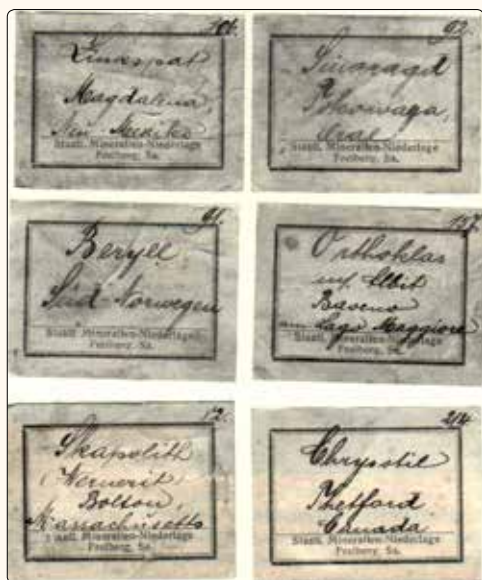 106.
Zinkspat
Magdalena,
Neu Mexiko
Staatl. Mineralien-Niederlage
Freiberg, Sa.
92.
Smaragd
Ural
Staatl. Mineralien-Niederlage
Freiberg, Sa.
91.
Beryll
Süd-Norwegen
Staatl. Mineralien-Niederlage
Freiberg, Sa.
157.
Orthoklas
Baveno
am Lago Maggiore
Staatl. Mineralien-Niederlage
Freiberg, Sa.
12.
Skapolith
(Wernerit)
Bolton,
Massachusetts
Staatl. Mineralien-Niederlage
Freiberg, Sa.
214
Chrysotil
Thetford
Canada
Staatl. Mineralien-Niederlage
Freiberg, Sa.